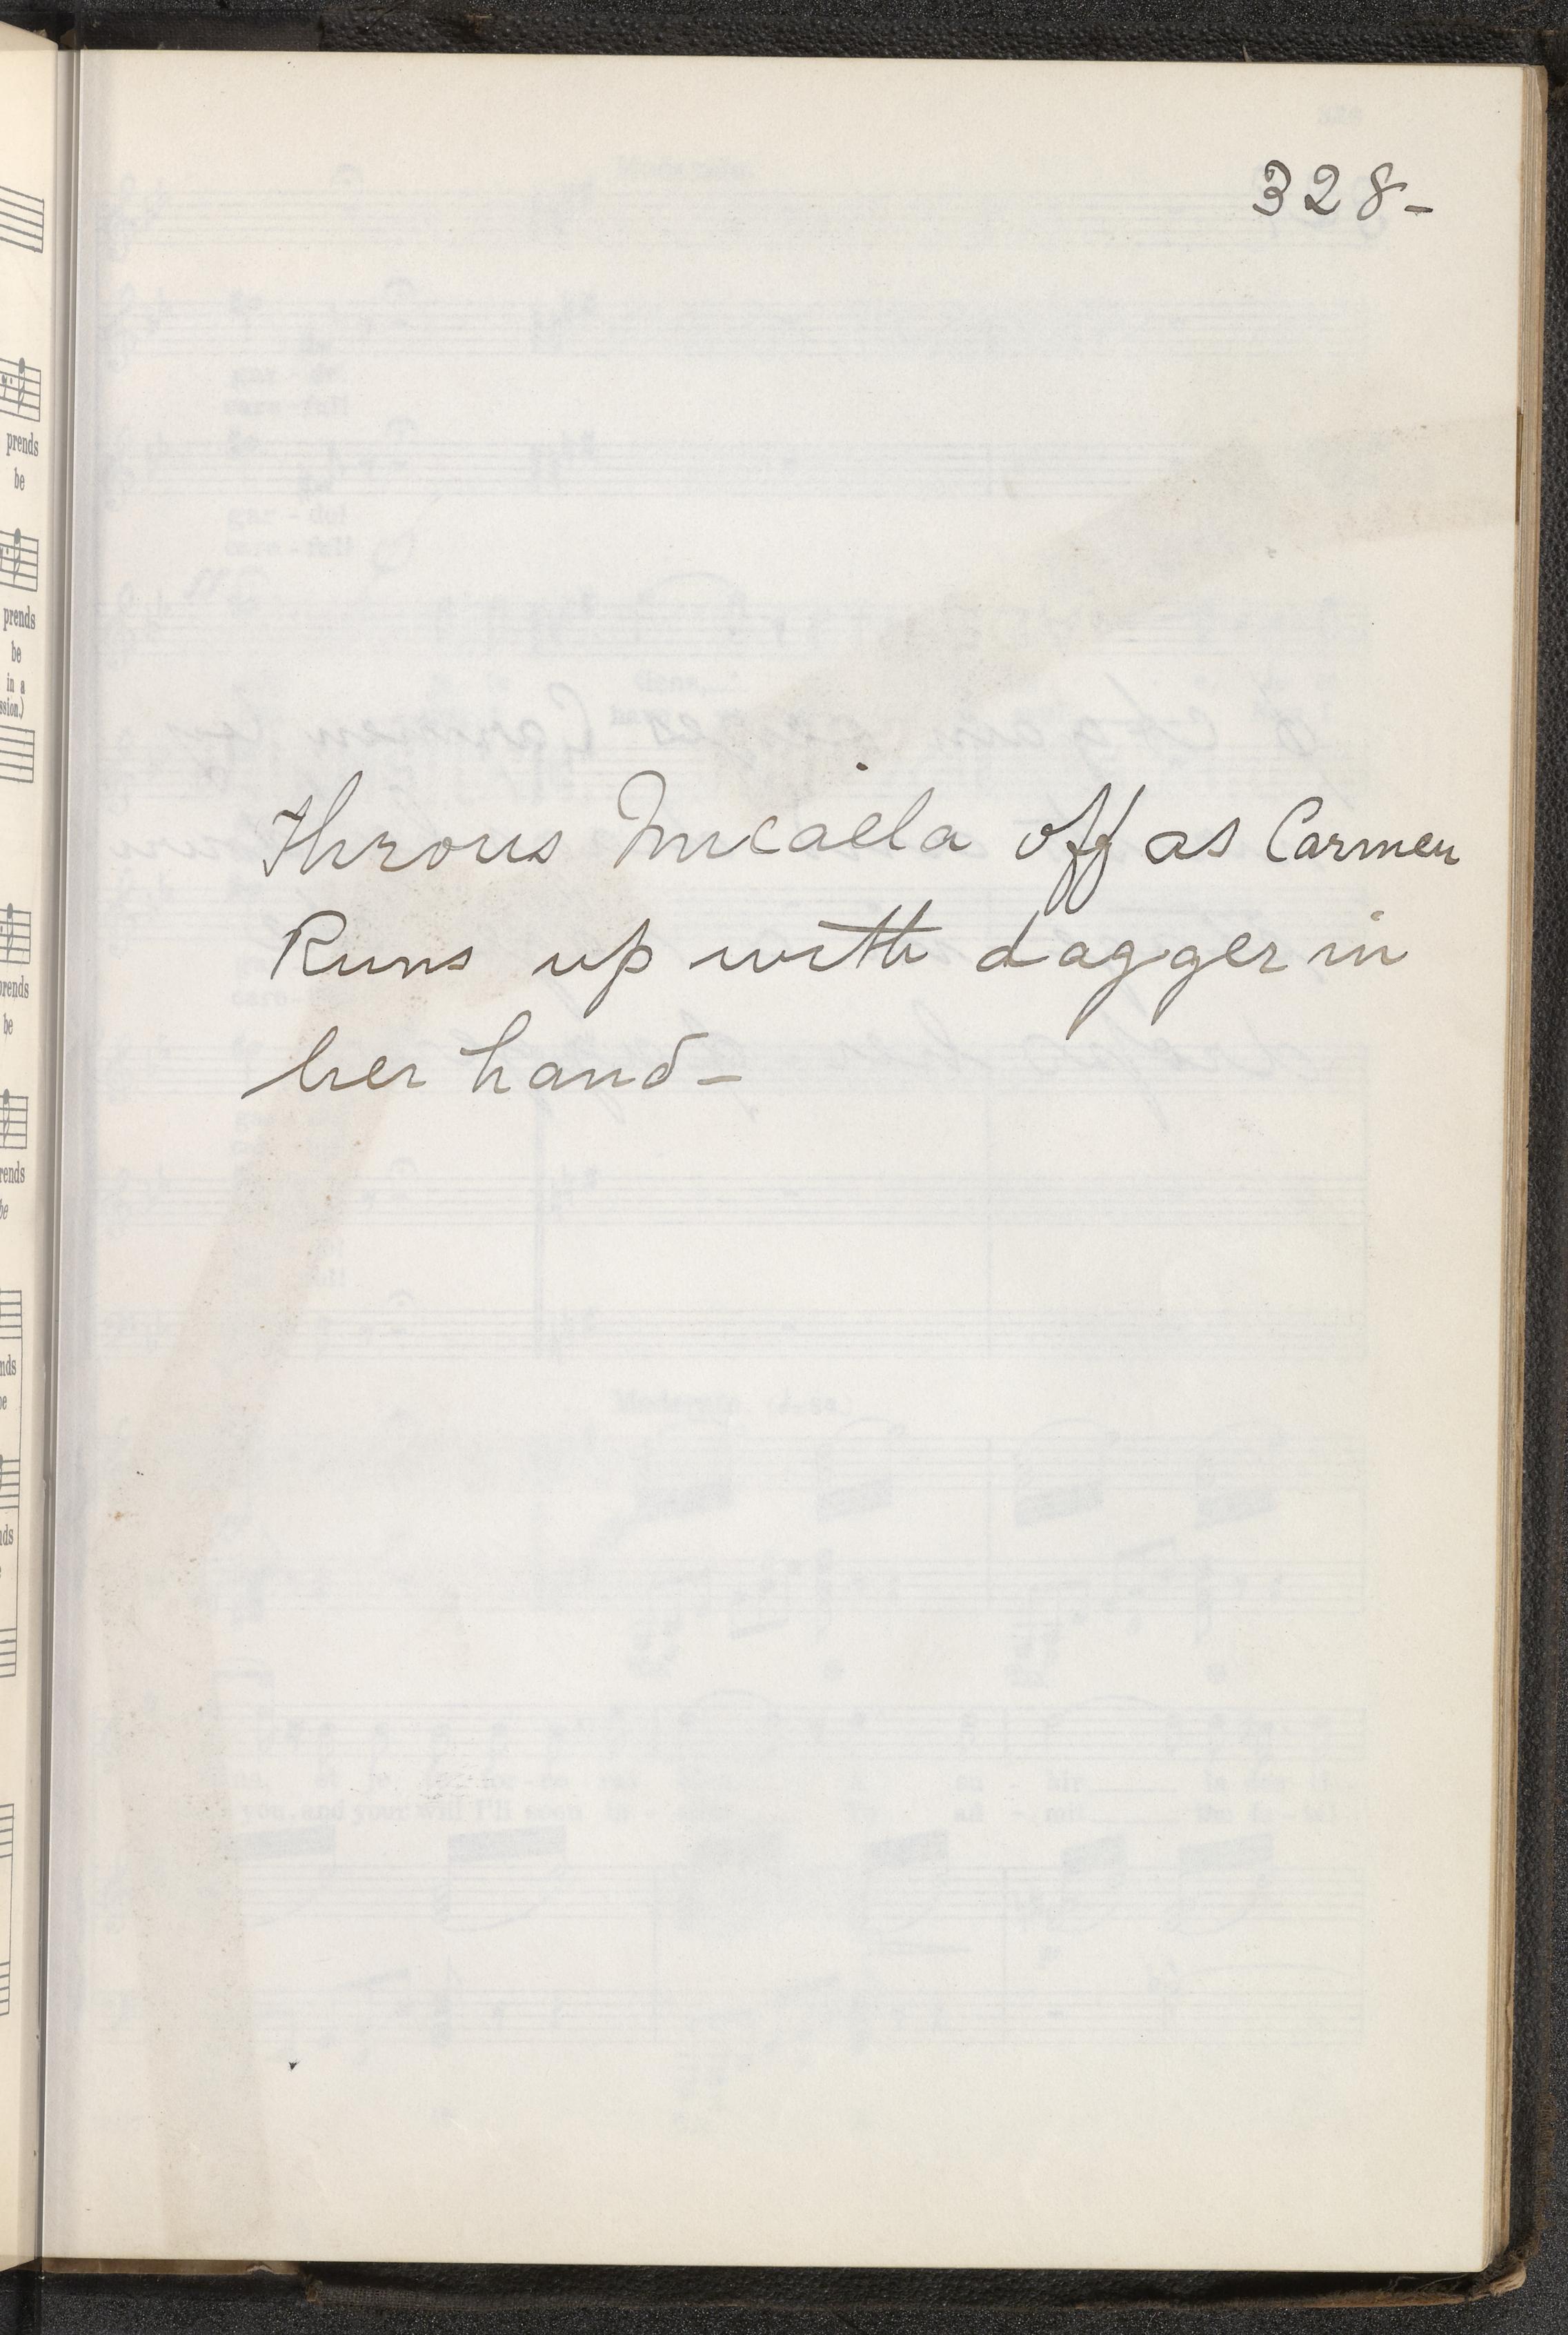 prends
be
prends
be
in a
ssion.)
prends
be
rends
be
nds
be
nds
328-
Throws Micaela off as Carmen
Runs up with dagger in
her hand-